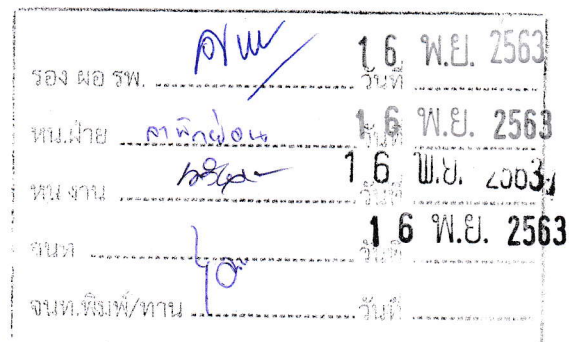 รอง ผอ รพ. วันที่ 16 พ.ย. 2563
หน.ฝ่าย ลาพักผ่อน วันที่ 16 พ.ย. 2563
หน งาน วันที่ 16 พ.ย. 2563
จนท วันที่ 16 พ.ย. 2563
จนท.พิมพ์/ทาน วันที่